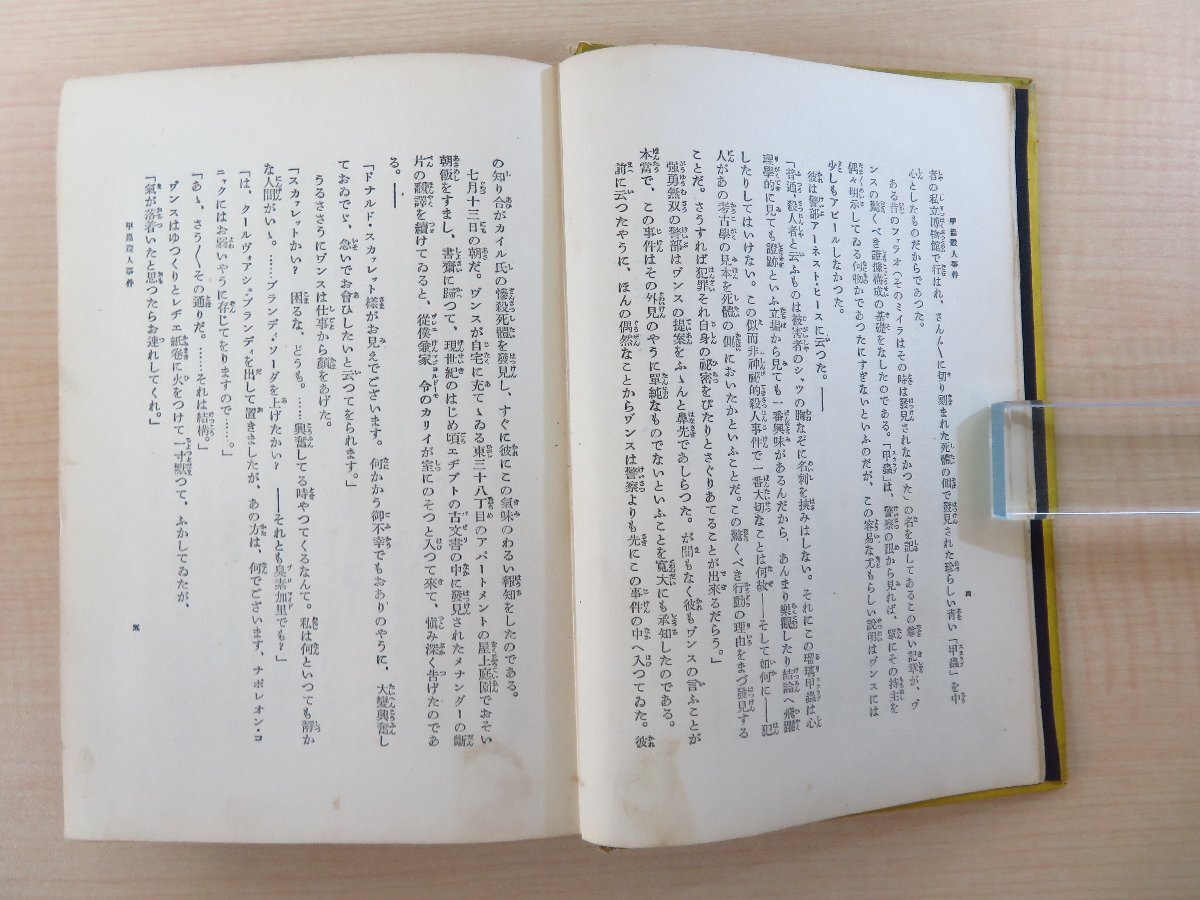 甲蟲殺人事件
四
者の私立博物館で行はれ、さん〲に切り刻まれた死體の側で發見された珍らしい靑い「甲蟲」を中
心としたものだからであつた。
ある昔のフアラオ(そのミイラはその時は發見されなかつた)の名を記してあるこの尊い記章が、ヴ
ンスの驚くべき證據構成の基礎をなしたのである。「甲蟲」は、警察の眼から見れば、單にその持主を
偶々明示してゐる何物かであつたにすぎないといふのだが、この容易な尤もらしい說明はヴンスには
少しもアピールしなかつた。
彼は警部アーネスト・ヒースに云つた。――
「普通、殺人者と云ふものは被害者のシヤツの胸なぞに名刺を挾みはしない。それにこの瑠璃甲蟲は心
理學的に見ても證跡といふ立場から見ても一番興味があるんだから、あんまり樂觀したり結論へ飛躍
したりしてはいけない。この似而非神祕的殺人事件で一番大切なことは何故――そして如何に――犯
人があの考古學の見本を死體の側においたかといふことだ。この驚くべき行動の理由をまづ發見する
ことだ。さうすれば犯罪それ自身の祕密をぴたりとさぐりあてることが出來るだらう。」
强勇無双の警部はヴンスの提案をふゝんと鼻先であしらつた。が間もなく彼もヴンスの言ふことが
本當で、この事件はその外見のやうに單純なものでないといふことを寬大にも承知したのである。
前に云つたやうに、ほんの偶然なことからヴンスは警察よりも先にこの事件の中へ入つてゐた。彼
の知り合がカイル氏の慘殺死體を發見し、すぐに彼にこの氣味のわるい報知をしたのである。
七月十三日の朝だ。ヴンスが自宅に充てゝゐる東三十八丁目のアパートメントの屋上庭園でおそい
朝飯をすまし、書齋に歸つて、現世紀のはじめ頃エヂプトの古文書の中に發見されたメナンダーの斷
片の飜譯を續けてゐると、從僕兼家令のカリイが室にそつと入つて來て、愼み深く告げたのであ
る。――
「ドナルド・スカアレット樣がお見えでございます。何かかう御不幸でもおありのやうに、大變興奮し
ておゐでゞ、急いでお會ひしたいと云つてをられます。」
うるささうにヴンスは仕事から顏をあげた。
「スカアレットかい? 困るな、どうも。……興奮してる時やつてくるなんて。私は何といつても靜か
な人間がいゝ。……ブランディ・ソーダを上げたかい? ――それとも臭素加里でも?」
「は、クールヴォアシュ・ブランディを出して置きましたが、あの方は、何でございます、ナポレオン・コ
ニャクにはお弱いやうに存じてをりますので……。」
「あゝ、さう〱その通りだ。……それは結構。」
ヴンスはゆつくりとレヂエ紙卷に火をつけて一寸默つて、ふかしてゐたが、
「氣が落着いたと思つたらお連れしてくれ。」
甲蟲殺人事件
五